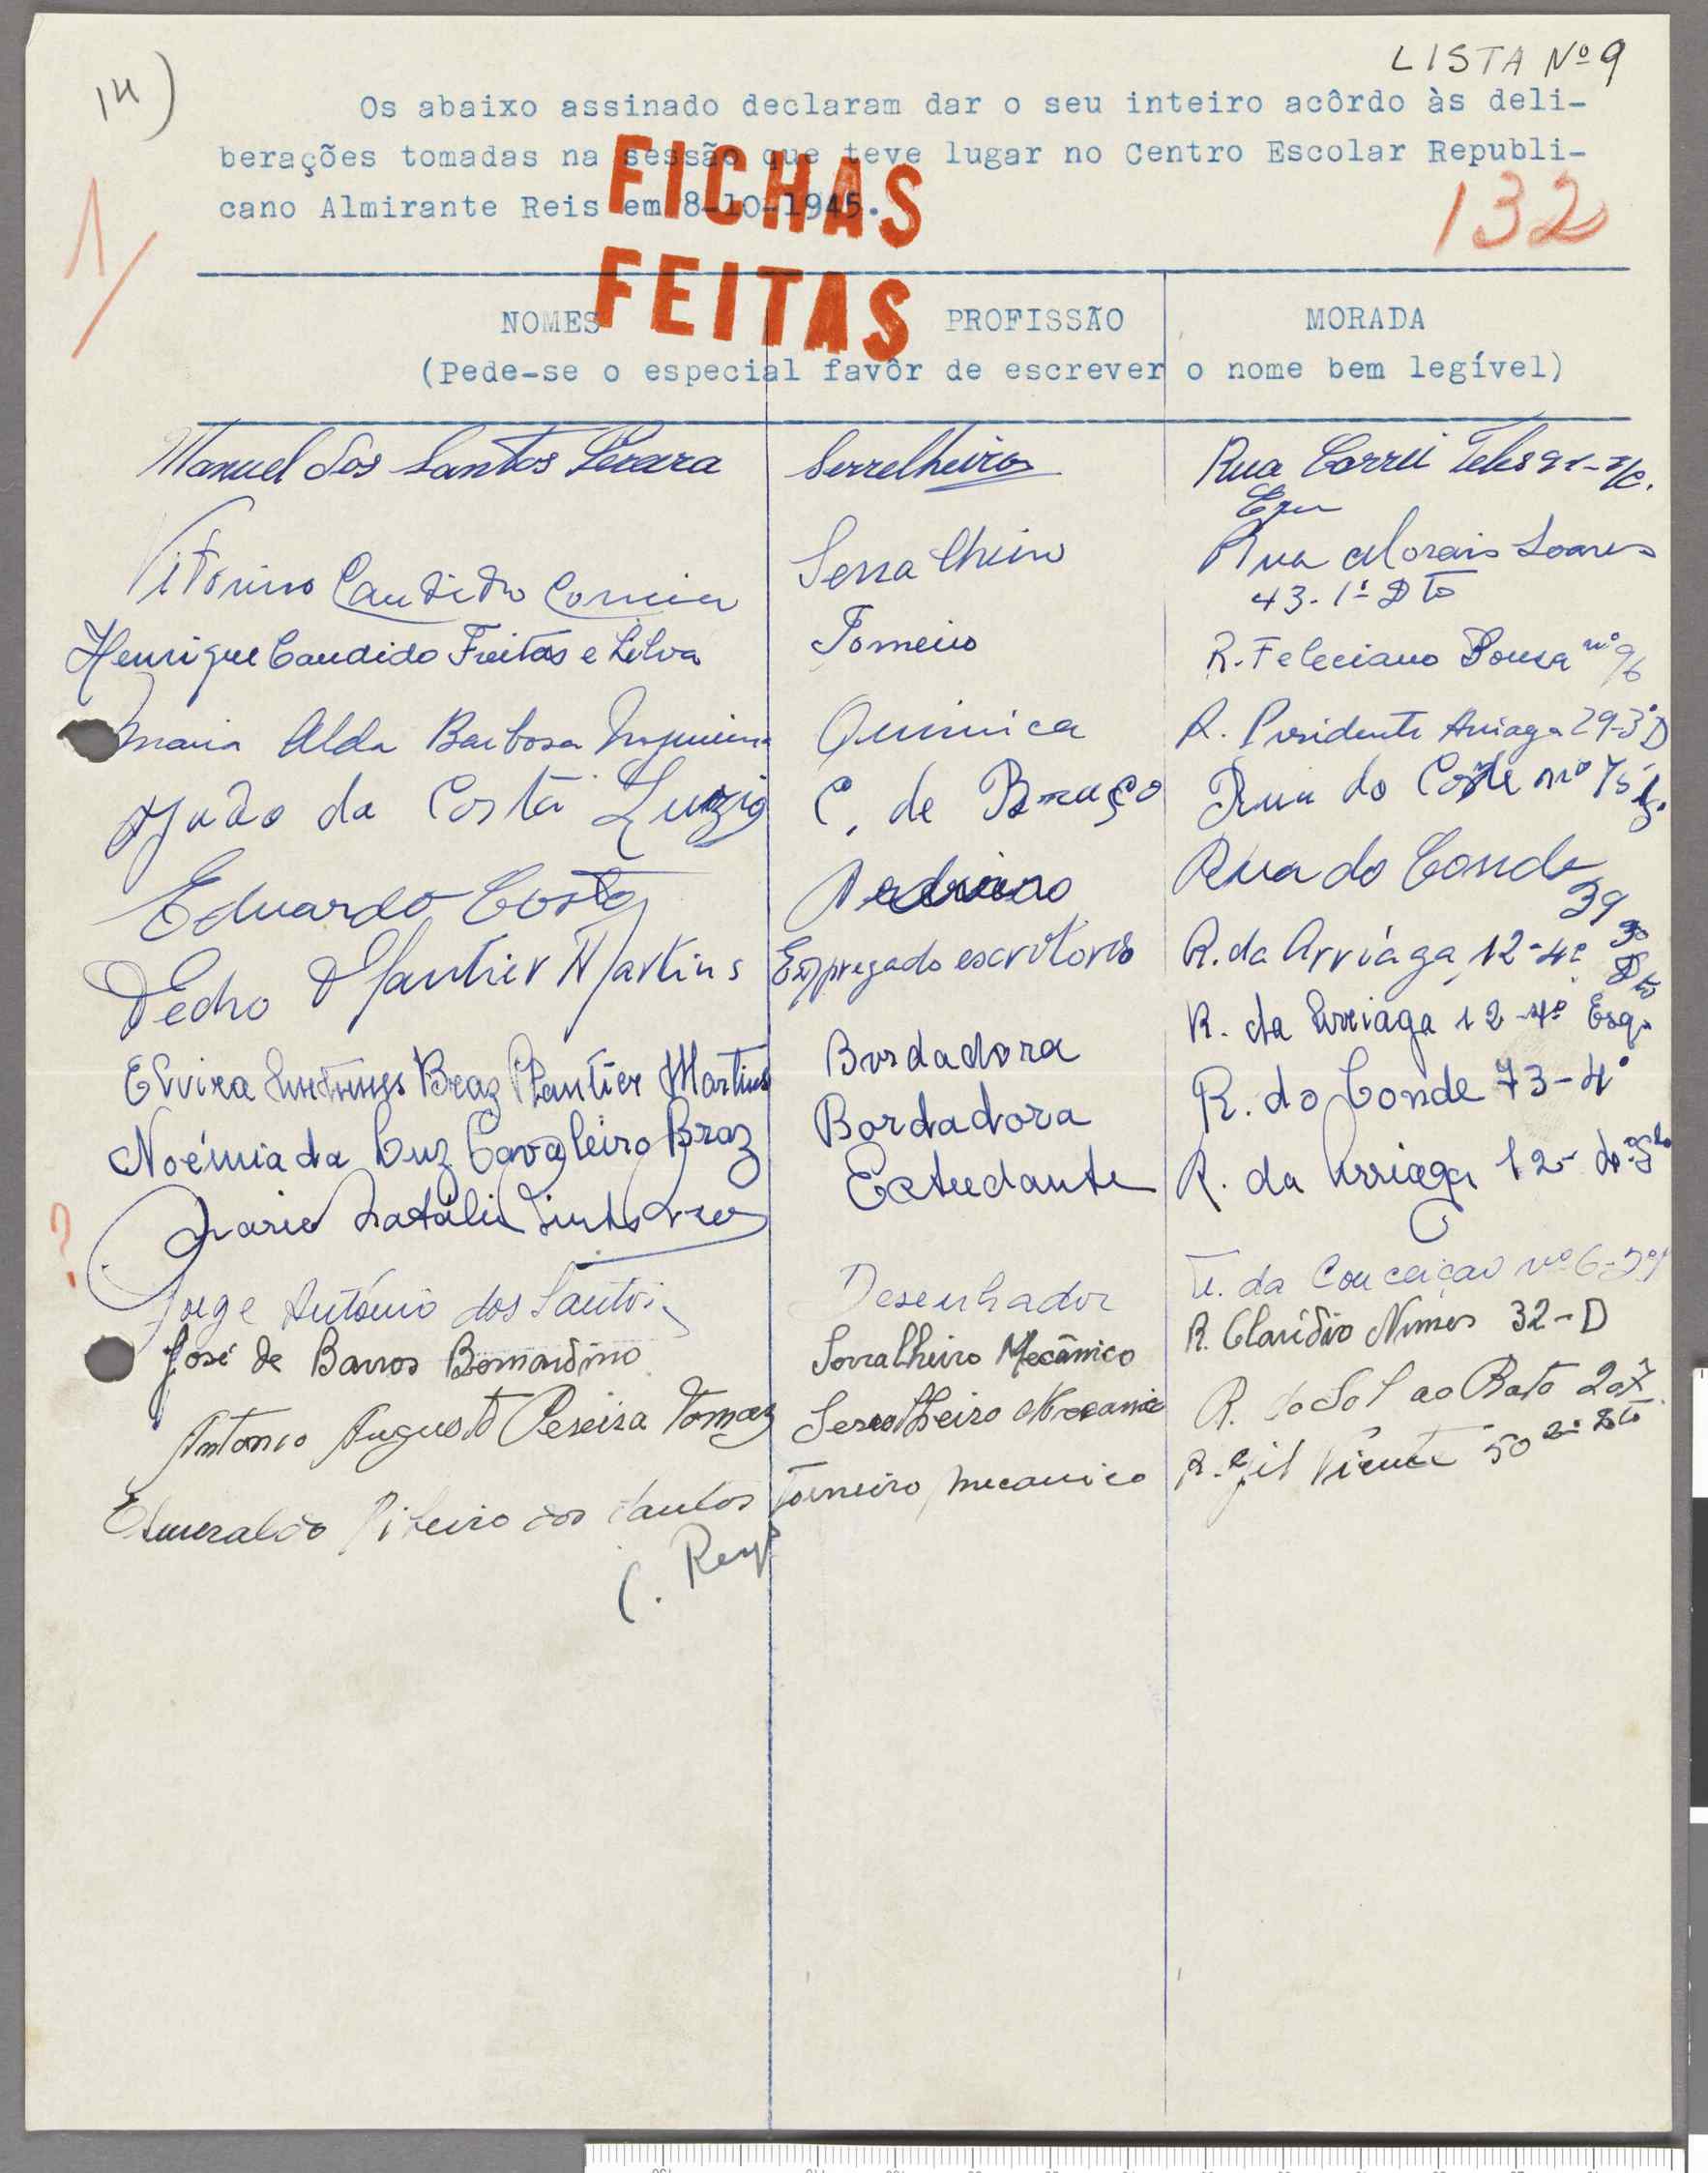 LISTA Nº 9
14)
Os abaixo assinado declaram dar o seu inteiro acôrdo às deli-
berações tomadas na sessão que teve lugar no Centro Escolar Republi-
cano Almirante Reis em 8-10-1945.
FICHAS
FEITAS
132
1/
NOMES PROFISSÃO MORADA
(Pede-se o especial favôr de escrever o nome bem legível)
Manuel dos Santos Serrelheiro Rua
Vitorino Candido Correia Serralheiro Rua Morais Soares
43-1º Dto
Henrique Candido Freitas e Silva Torneiro R. Feleciano Sousa nº 96
Maria Alda Barbosa Nogueira Quimica R. Presidente Arriaga 29-3º D
João da Costa Luzio C. de Braço Rua do nº 75
Eduardo Costa Pedreiro Rua do Conde
39
3º
Pedro Plantier Martins Empregado escritorio R. da Arriaga 12-4º Dto
Elvira Antunes Braz Plantier Martins Bordadora R. da Arriaga 12-4º Esq.
Noémia da Luz Cavaleiro Braz Bordadora R. do Conde 73-4º
? Mario Natália Estudante R. da Arriaga 12-
Jorge António dos Santos Desenhador T. da Conceição nº 6-
José de Barros Bernardino Serralheiro Mecânico R. Claúdio Nunes 32-D
Antonio Augusto Pereira Tomaz Serralheiro Mecanico R. do Sol ao Rato 207
Esmeraldo Ribeiro dos Santos Torneiro mecanico R. Gil Vicente 50 2º Dto